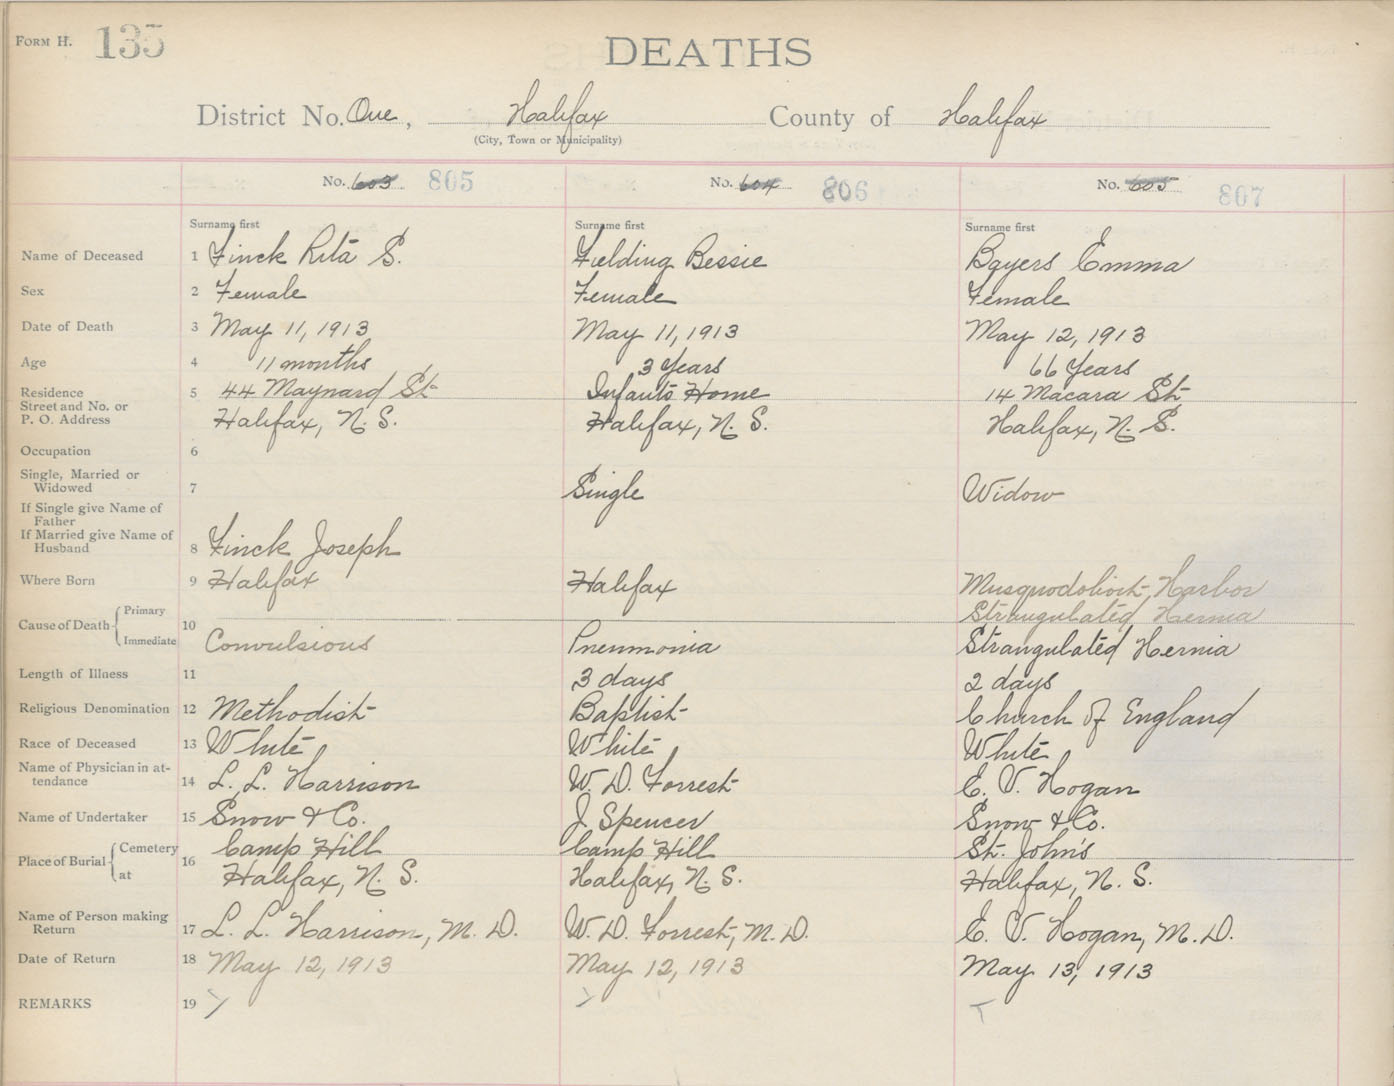 FORM H. 135
DEATHS
District No. One, Halifax County of Halifax
(City, Town or Municipality)
No. 603 805 No. 604 806 No. 605 807
Surname first Surname first Surname first
Name of Deceased 1 Finck Rita S. Fielding Bessie Bayers Emma
Sex 2 Female Female Female
Date of Death 3 May 11, 1913 May 11, 1913 May 12, 1913
Age 4 11 months 3 Years 66 Years
Residence 5 44 Maynard St. Infants Home 14 Macara St.
Street and No. or
P. O. Address Halifax, N. S. Halifax, N. S. Halifax, N. S.
Occupation 6
Single, Married or
Widowed 7 Single Widow
If Single give Name of
Father
If Married give Name of
Husband 8 Finck Joseph
Where Born 9 Halifax Halifax Musquodoboit Harbor
Primary Strangulated Hernia
Cause of Death 10
Immediate Convulsions Pneumonia Strangulated Hernia
Length of Illness 11 3 days 2 days
Religious Denomination 12 Methodist Baptist Church of England
Race of Deceased 13 White White White
Name of Physician in at-
tendance 14 L. L. Harrison W. D. Forrest E. V. Hogan
Name of Undertaker 15 Snow & Co. J. Spencer Snow & Co.
Cemetery Camp Hill Camp Hill St. John's
Place of Burial 16
at Halifax, N. S. Halifax, N. S. Halifax, N. S.
Name of Person making
Return 17 L. L. Harrison, M. D. W. D. Forrest, M. D. E. V. Hogan, M. D.
Date of Return 18 May 12, 1913 May 12, 1913 May 13, 1913
REMARKS 19